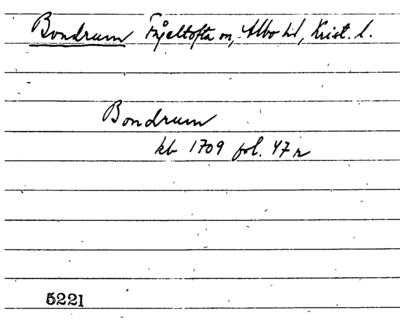 Bondrum Fågeltofta sn, Albo hd, Krist. l.
Bondrum
kb 1709 fol. 47 r
5221